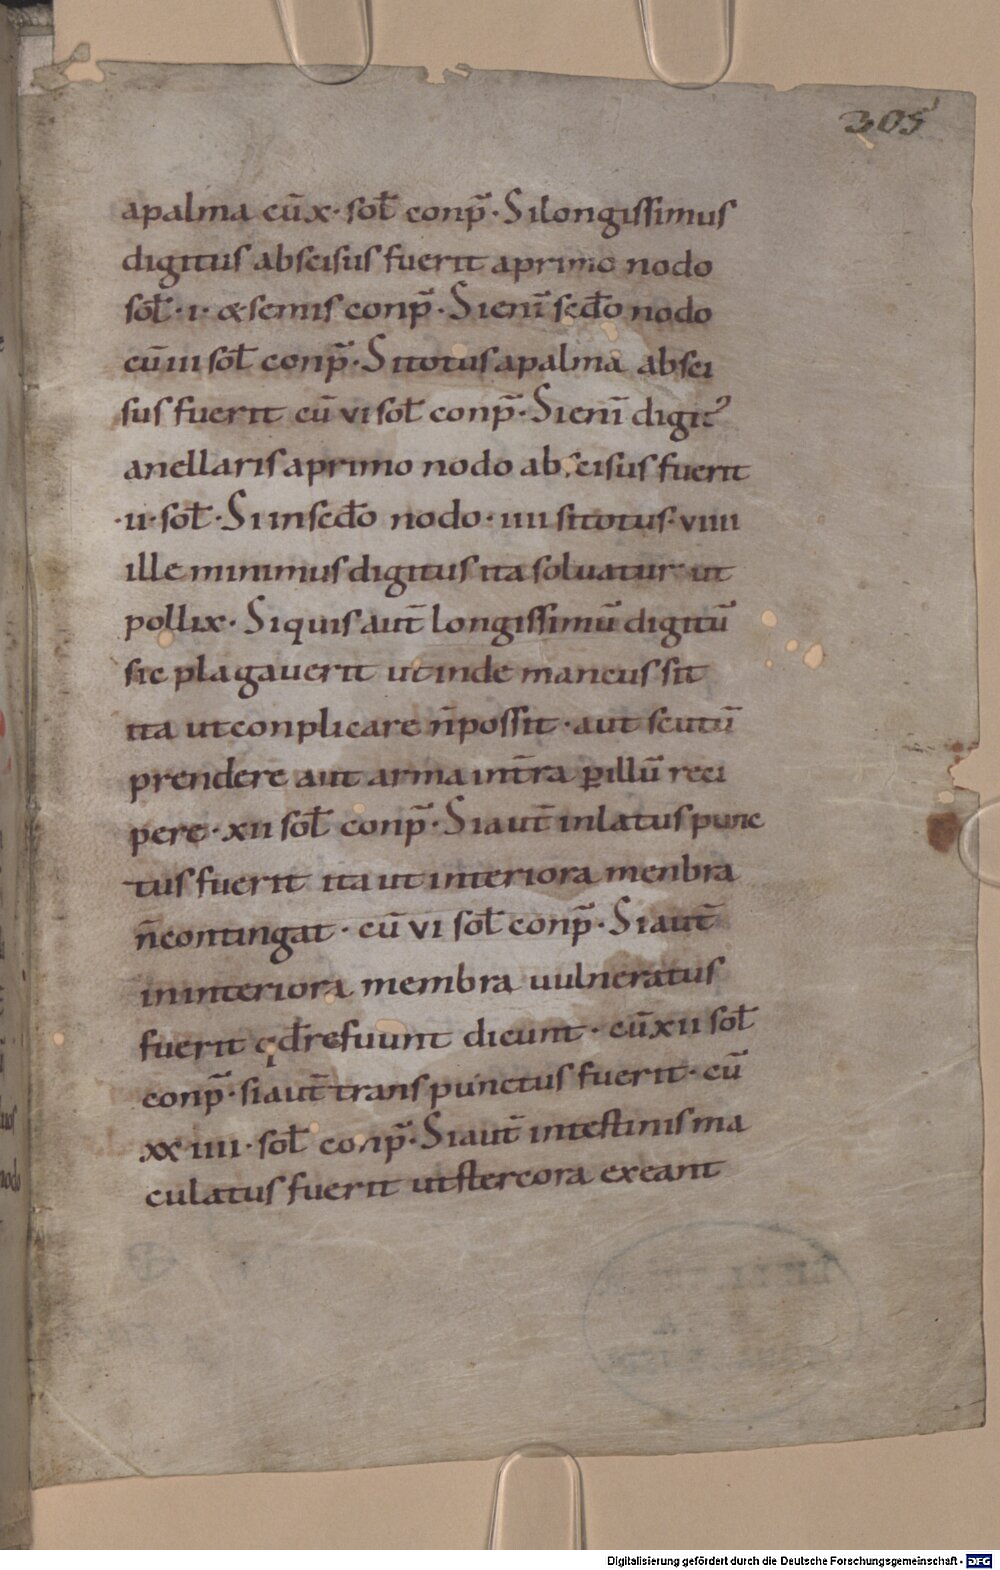 305
apalma cū x· sol̄ conp̄· Si longissimus
digitus abscisus fuerit aprimo nodo
sol̄· i· & semis conp̄· Si enī scd̄o nodo
cū iii sol̄ conp̄· Si totus apalma absci
sus fuerit cū vi sol̄ conp̄· Si enī digit᾽
anellaris aprimo nodo abscisus fuerit
·ii· sol̄· Si in scd̄o nodo· iiii si totus· viiii
ille minimus digitus ita soluatur ut
pollix· Si quis aut̄ longissimū digitū
sic plagauerit ut inde mancus sit
ita ut conplicare n̄ possit· aut scutū
prendere aut arma in tr̄a ꝑ illū reci
pere· xii sol̄ conp̄· Si aut̄ in latus punc
tus fuerit ita ut interiora menbra
n̄ contingat· cū vi sol̄ conp̄· Si aut̄
in interiora membra uulneratus
fuerit qd̄ refuunt dicunt· cū xii sol̄
conp̄· si aut̄ transpunctus fuerit· cū
xx iiii· sol̄ conp̄· Si aut̄ intestinis ma
culatus fuerit ut stercora exeant
Digitalisierung gefördert durch die Deutsche Forschungsgemeinschaft - DFG